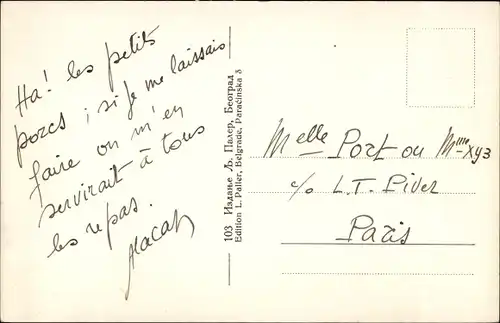 Ha! les petits
porcs ; si je me laissais
faire on m'en
servirait à tous
les repas.
103 Издање Љ. Палер, Београд
Edition L. Paller, Belgrade, Paraćinska 3
Melle Port ou Mme xyz
c/o L.T. Piver
Paris